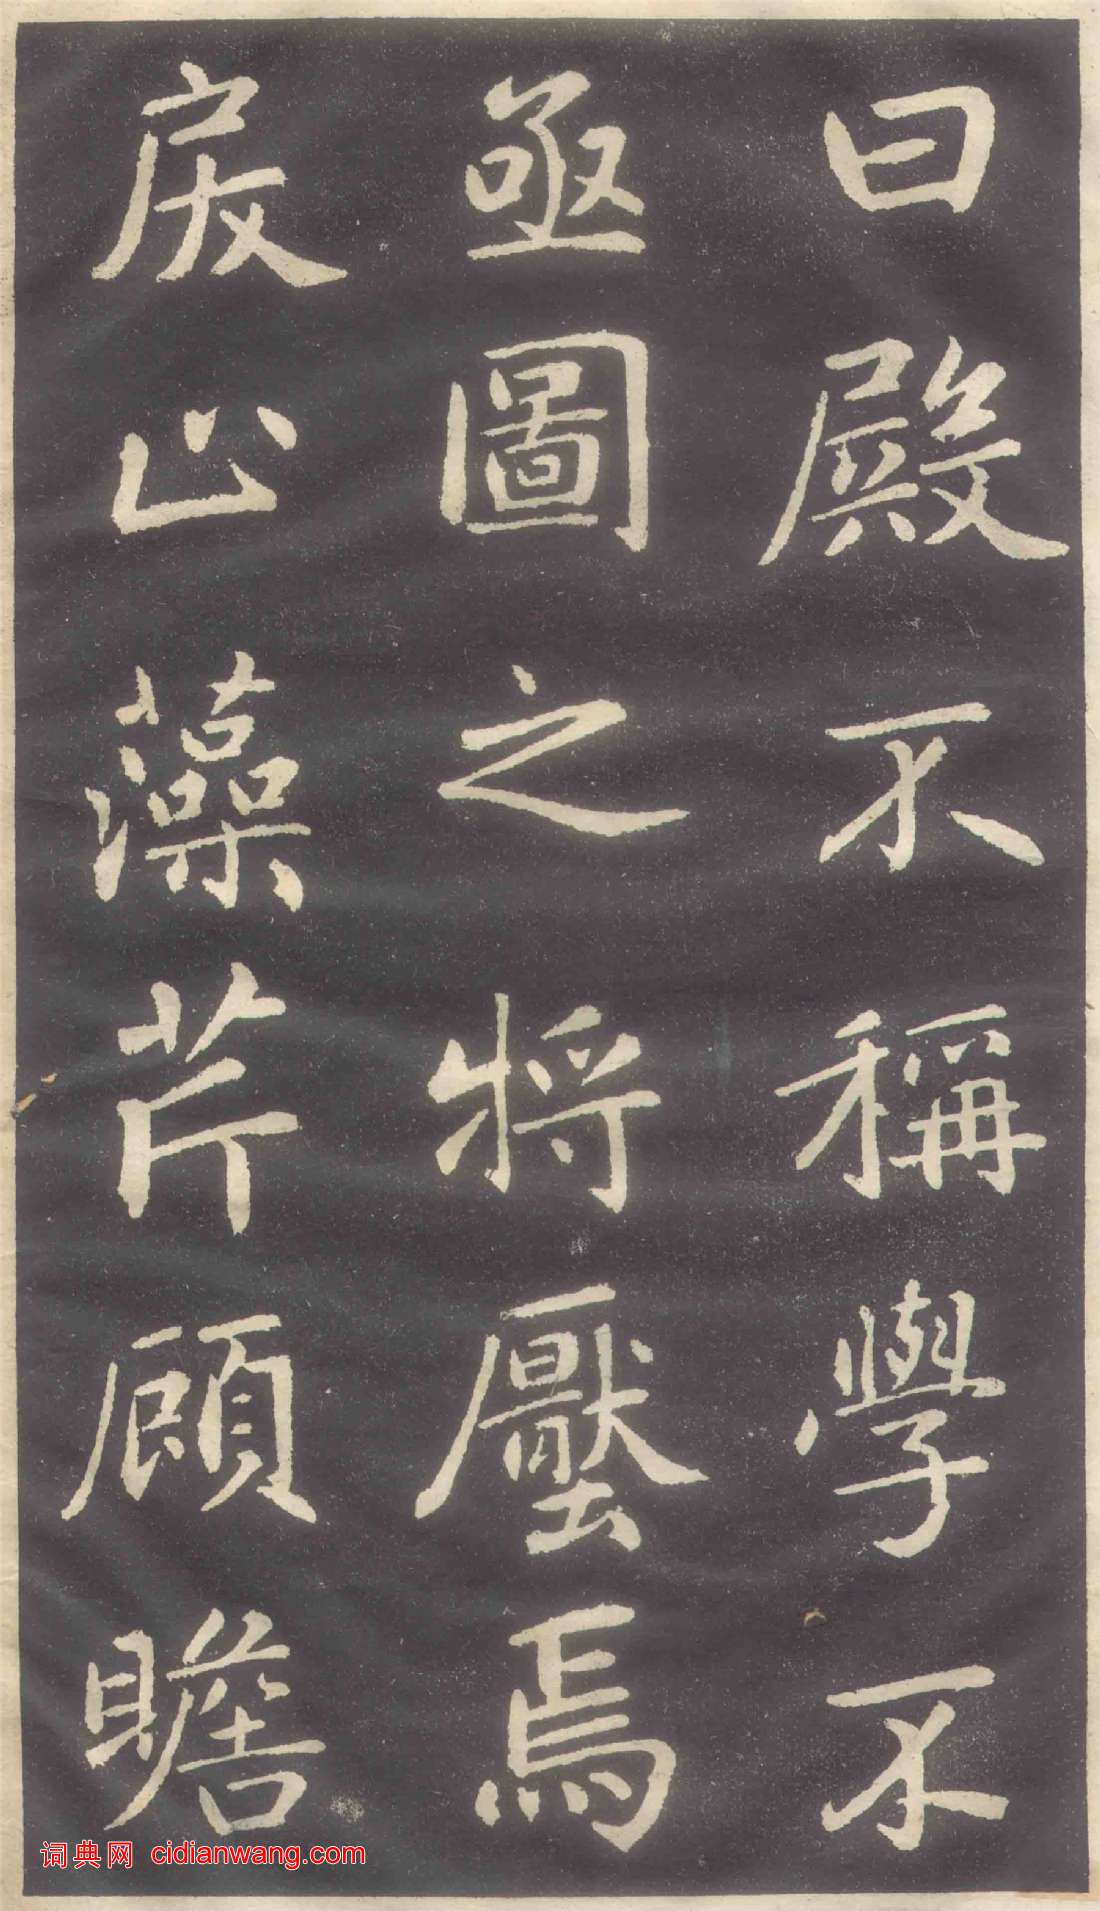 曰殿不稱學不
亟圖之將壓焉
戾止藻芹顧瞻
词典网 cidianwang.com